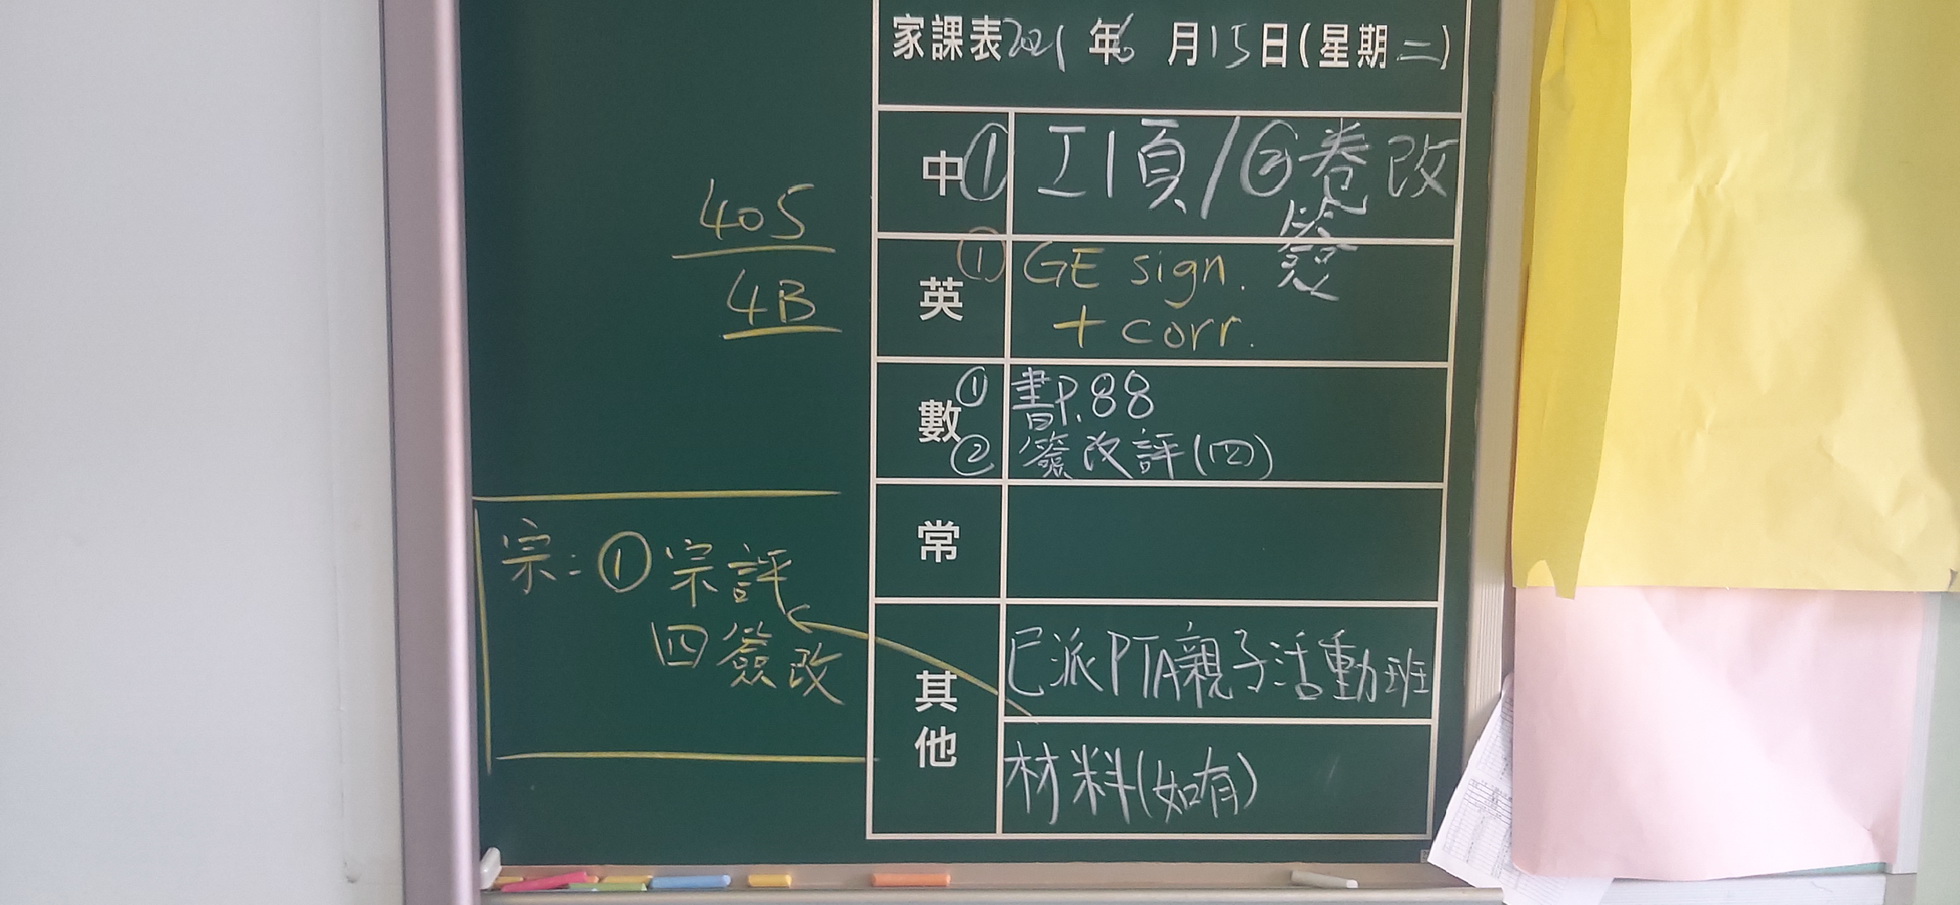 家課表2021年6月15日(星期二)
中① 工1頁/②卷改
簽
405
4B
英① GE sign.
+ corr.
數① 書P.88
② 簽改評(四)
常
宗:①宗評
四簽改
其他
已派PTA親子活動班
材料(如有)